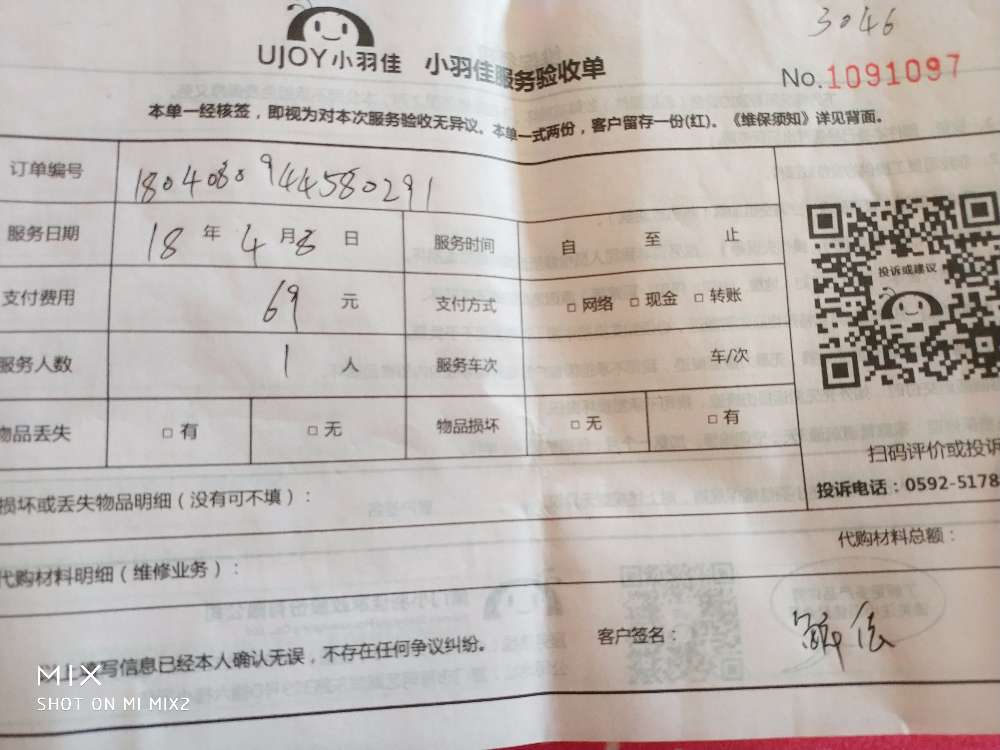 3046
UJOY小羽佳 小羽佳服务验收单
No.1091097
本单一经核签，即视为对本次服务验收无异议。本单一式两份，客户留存一份(红)。《维保须知》详见背面。
订单编号 1804080944580291
服务日期 18 年 4 月 8 日 服务时间 自 至 止
支付费用 69 元 支付方式 □ 网络 □ 现金 □ 转账
服务人数 1 人 服务车次 车/次
物品丢失 □ 有 □ 无 物品损坏 □ 无 □ 有
投诉或建议
扫码评价或投诉
投诉电话：0592-5178
损坏或丢失物品明细（没有可不填）：
代购材料总额：
代购材料明细（维修业务）：
填写信息已经本人确认无误，不存在任何争议纠纷。
客户签名：
MIX
SHOT ON MI MIX2